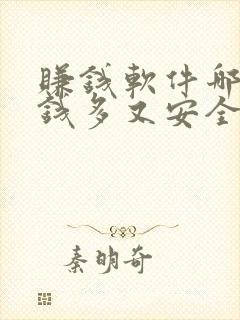 賺錢軟件哪
錢多又安全
秦明奇